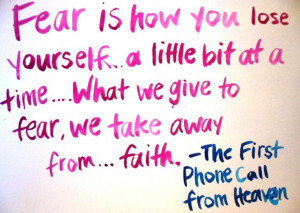 Fear is how you lose
yourself... a little bit at a
time.... What we give to
fear, we take away
from... faith. -The First
Phone Call
from Heaven